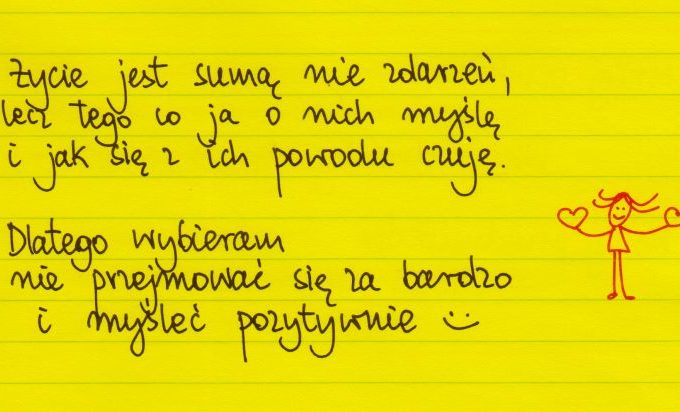 Życie jest sumą nie zdarzeń,
lecz tego co ja o nich myślę
i jak się z ich powodu czuję.
Dlatego wybieram
nie przejmować się za bardzo
i myśleć pozytywnie :)